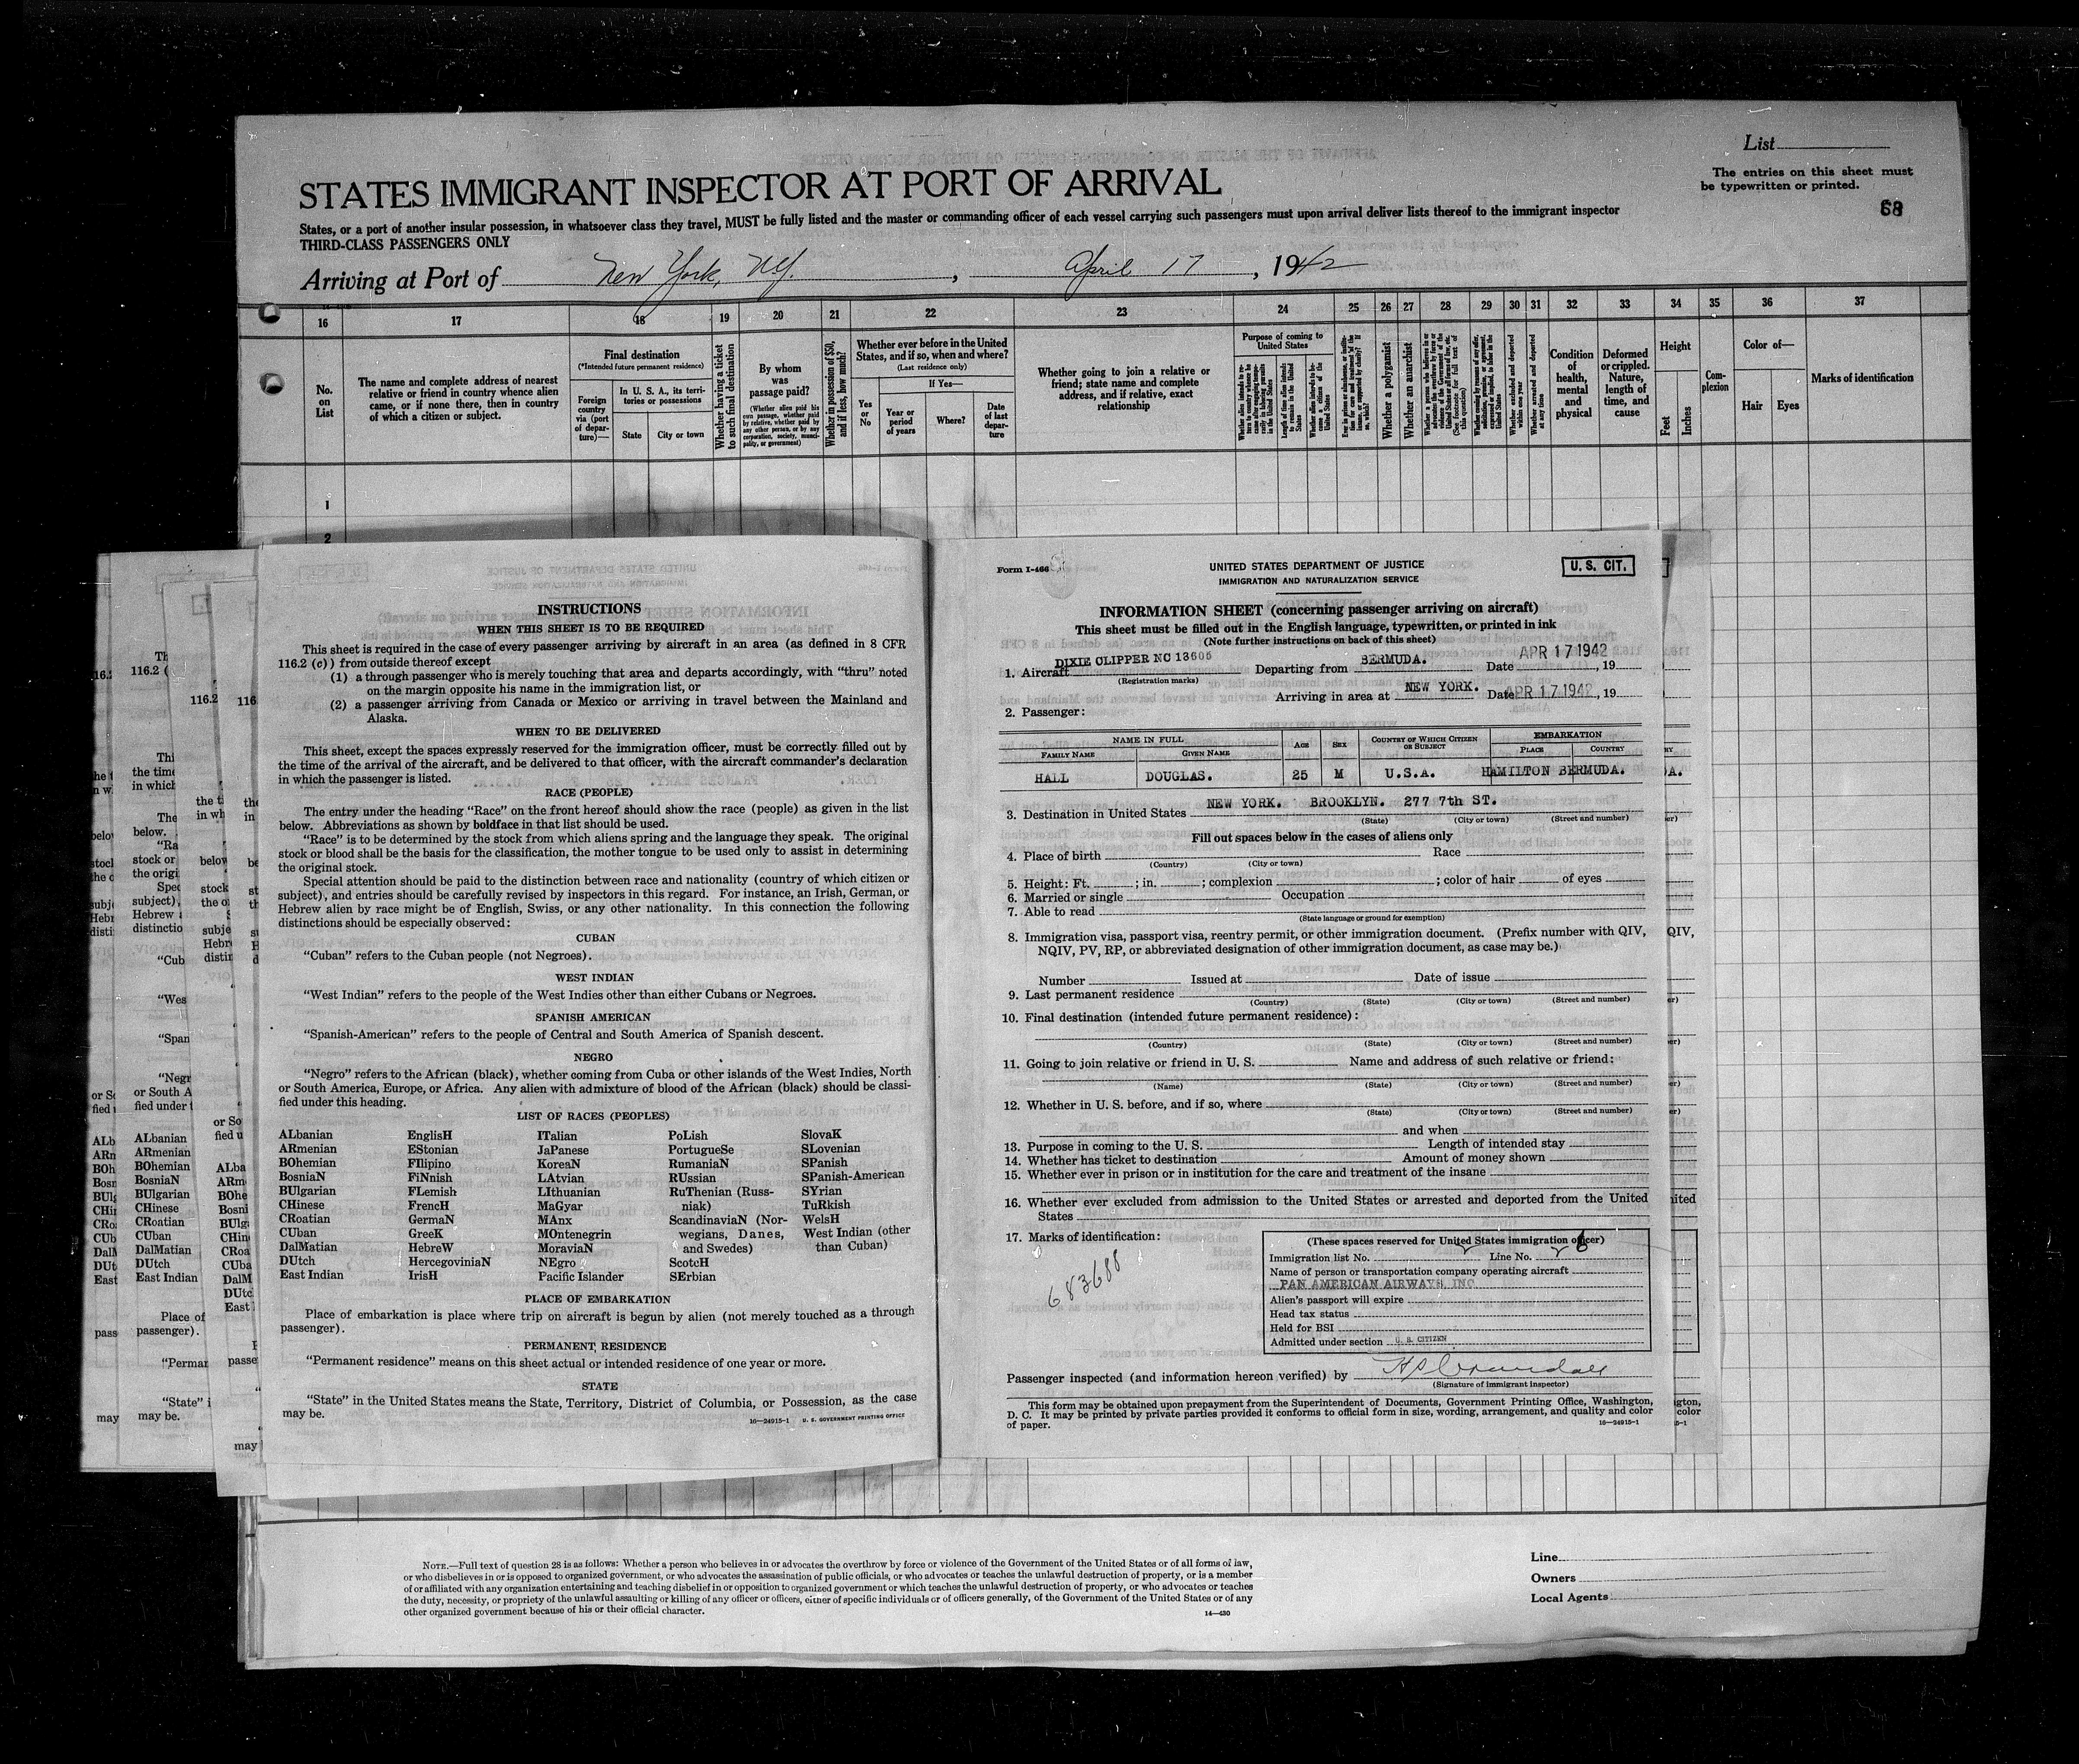 List
The entries on this sheet must
be typewritten or printed.
68
STATES IMMIGRANT INSPECTOR AT PORT OF ARRIVAL
States, or a port of another insular possession, in whatsoever class they travel, MUST be fully listed and the master or commanding officer of each vessel carrying such passengers must upon arrival deliver lists thereof to the immigrant inspector
THIRD-CLASS PASSENGERS ONLY
Arriving at Port of New York, NY. , April 17 , 1942
16 17 18 19 20 21 22 23 24 25 26 27 28 29 30 31 32 33 34 35 36 37
No. on List
The name and complete address of nearest
relative or friend in country whence alien
came, or if none there, then in country
of which a citizen or subject.
Final destination
(*Intended future permanent residence)
Foreign
country
via (port
of depar-
ture)—
In U. S. A., its terri-
tories or possessions
State
City or town
Whether having a ticket
to such final destination
By whom
was
passage paid?
(Whether alien paid his
own passage, whether paid
by relative, whether paid by
any other person, or by any
corporation, society, munici-
pality, or government)
Whether in possession of $50,
and if less, how much?
Whether ever before in the United
States, and if so, when and where?
(Last residence only)
If Yes—
Yes
or
No
Year or
period
of years
Where?
Date
of last
depar-
ture
Whether going to join a relative or
friend; state name and complete
address, and if relative, exact
relationship
Purpose of coming to
United States
Whether a polygamist
Whether an anarchist
Condition
of
health,
mental
and
physical
Deformed
or crippled.
Nature,
length of
time, and
cause
Height
Feet
Inches
Com-
plexion
Color of—
Hair
Eyes
Marks of identification
1
2
INSTRUCTIONS
WHEN THIS SHEET IS TO BE REQUIRED
This sheet is required in the case of every passenger arriving by aircraft in an area (as defined in 8 CFR
116.2 (c)) from outside thereof except
(1) a through passenger who is merely touching that area and departs accordingly, with "thru" noted
on the margin opposite his name in the immigration list, or
(2) a passenger arriving from Canada or Mexico or arriving in travel between the Mainland and
Alaska.
WHEN TO BE DELIVERED
This sheet, except the spaces expressly reserved for the immigration officer, must be correctly filled out by
the time of the arrival of the aircraft, and be delivered to that officer, with the aircraft commander's declaration
in which the passenger is listed.
RACE (PEOPLE)
The entry under the heading "Race" on the front hereof should show the race (people) as given in the list
below. Abbreviations as shown by boldface in that list should be used.
"Race" is to be determined by the stock from which aliens spring and the language they speak. The original
stock or blood shall be the basis for the classification, the mother tongue to be used only to assist in determining
the original stock.
Special attention should be paid to the distinction between race and nationality (country of which citizen or
subject), and entries should be carefully revised by inspectors in this regard. For instance, an Irish, German, or
Hebrew alien by race might be of English, Swiss, or any other nationality. In this connection the following
distinctions should be especially observed:
CUBAN
"Cuban" refers to the Cuban people (not Negroes).
WEST INDIAN
"West Indian" refers to the people of the West Indies other than either Cubans or Negroes.
SPANISH AMERICAN
"Spanish-American" refers to the people of Central and South America of Spanish descent.
NEGRO
"Negro" refers to the African (black), whether coming from Cuba or other islands of the West Indies, North
or South America, Europe, or Africa. Any alien with admixture of blood of the African (black) should be classi-
fied under this heading.
LIST OF RACES (PEOPLES)
ALbanian EnglisH ITalian PoLish SlovaK
ARmenian EStonian JaPanese PortugueSe SLovenian
BOhemian FIlipino KoreaN RumaniaN SPanish
BosniaN FiNnish LAtvian RUssian SPanish-American
BUlgarian FLemish LIthuanian RuThenian (Russ- SYrian
CHinese FrencH MaGyar niak) TuRkish
CRoatian GermaN MAnx ScandinaviaN (Nor- WelsH
CUban GreeK MOntenegrin wegians, Danes, West Indian (other
DalMatian HebreW MoraviaN and Swedes) than Cuban)
DUtch HercegoviniaN NEgro ScotcH
East Indian IrisH Pacific Islander SErbian
PLACE OF EMBARKATION
Place of embarkation is place where trip on aircraft is begun by alien (not merely touched as a through
passenger).
PERMANENT RESIDENCE
"Permanent residence" means on this sheet actual or intended residence of one year or more.
STATE
"State" in the United States means the State, Territory, District of Columbia, or Possession, as the case
may be.
16—24915-1 U. S. GOVERNMENT PRINTING OFFICE
Form I-466
UNITED STATES DEPARTMENT OF JUSTICE
IMMIGRATION AND NATURALIZATION SERVICE
U. S. CIT.
INFORMATION SHEET (concerning passenger arriving on aircraft)
This sheet must be filled out in the English language, typewritten, or printed in ink
(Note further instructions on back of this sheet)
1. Aircraft DIXIE CLIPPER NC 13605 Departing from BERMUDA. Date APR 17 1942, 19
(Registration marks)
Arriving in area at NEW YORK. Date APR 17 1942, 19
2. Passenger:
NAME IN FULL AGE SEX COUNTRY OF WHICH CITIZEN OR SUBJECT EMBARKATION
FAMILY NAME GIVEN NAME PLACE COUNTRY
HALL DOUGLAS. 25 M U.S.A. HAMILTON BERMUDA.
3. Destination in United States NEW YORK. BROOKLYN. 277 7th ST.
(State) (City or town) (Street and number)
Fill out spaces below in the cases of aliens only
4. Place of birth Race
(Country) (City or town)
5. Height: Ft. ; in. ; complexion ; color of hair of eyes
6. Married or single Occupation
7. Able to read
(State language or ground for exemption)
8. Immigration visa, passport visa, reentry permit, or other immigration document. (Prefix number with QIV,
NQIV, PV, RP, or abbreviated designation of other immigration document, as case may be.)
Number Issued at Date of issue
9. Last permanent residence
(Country) (State) (City or town) (Street and number)
10. Final destination (intended future permanent residence):
(Country) (State) (City or town) (Street and number)
11. Going to join relative or friend in U. S. Name and address of such relative or friend:
(Name) (State) (City or town) (Street and number)
12. Whether in U. S. before, and if so, where
(State) (City or town) (Street and number)
and when
13. Purpose in coming to the U. S. Length of intended stay
14. Whether has ticket to destination Amount of money shown
15. Whether ever in prison or in institution for the care and treatment of the insane
16. Whether ever excluded from admission to the United States or arrested and deported from the United
States
17. Marks of identification:
683688
(These spaces reserved for United States immigration officer)
Immigration list No. Line No.
Name of person or transportation company operating aircraft
PAN AMERICAN AIRWAYS, INC
Alien's passport will expire
Head tax status
Held for BSI
Admitted under section U. S. CITIZEN
Passenger inspected (and information hereon verified) by
(Signature of immigrant inspector)
This form may be obtained upon prepayment from the Superintendent of Documents, Government Printing Office, Washington,
D. C. It may be printed by private parties provided it conforms to official form in size, wording, arrangement, and quality and color
of paper.
16—24915-1
NOTE.—Full text of question 28 is as follows: Whether a person who believes in or advocates the overthrow by force or violence of the Government of the United States or of all forms of law,
or who disbelieves in or is opposed to organized government, or who advocates the assassination of public officials, or who advocates or teaches the unlawful destruction of property, or is a member
of or affiliated with any organization entertaining and teaching disbelief in or opposition to organized government or which teaches the unlawful destruction of property, or who advocates or teaches
the duty, necessity, or propriety of the unlawful assaulting or killing of any officer or officers, either of specific individuals or of officers generally, of the Government of the United States or of any
other organized government because of his or their official character.
14—430
Line
Owners
Local Agents